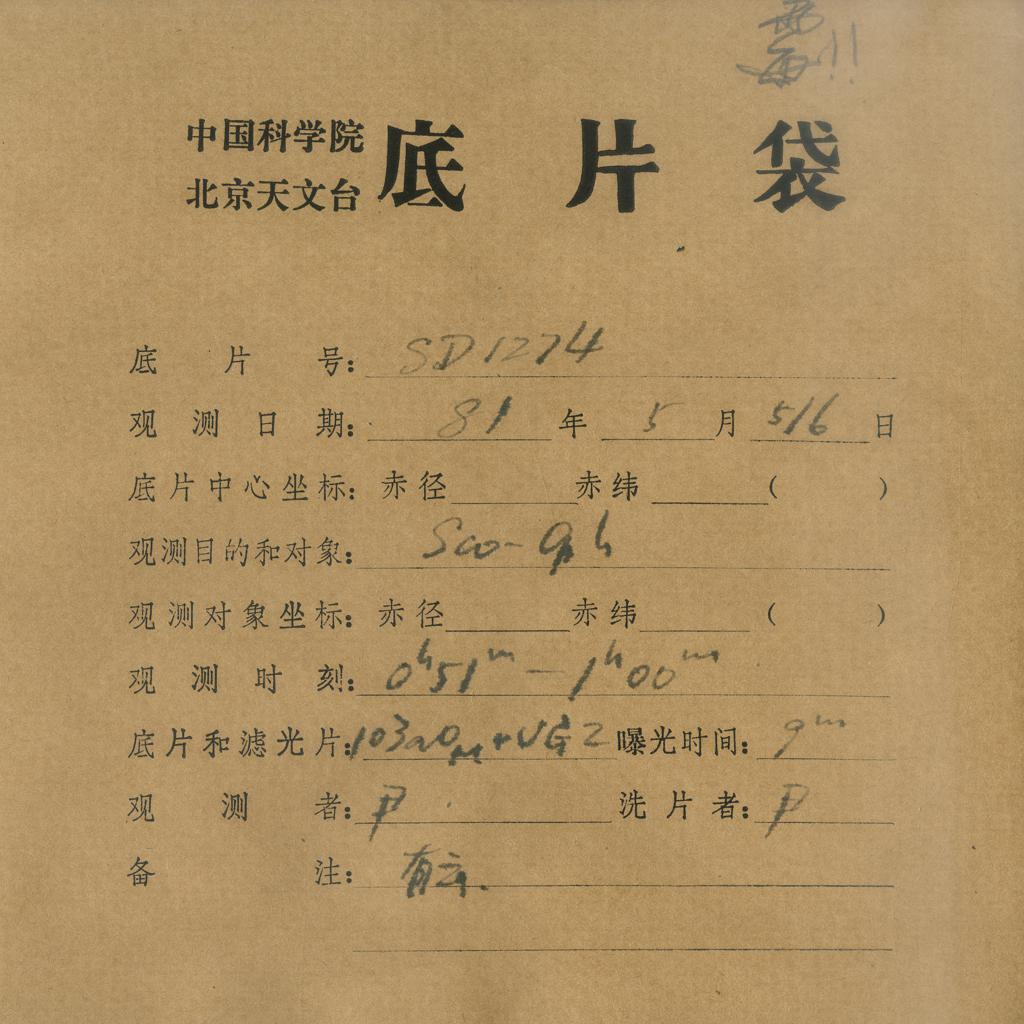 中国科学院
北京天文台 底片袋
底片号: SD1274
观测日期: 81 年 5 月 5/6 日
底片中心坐标: 赤径 赤纬 ( )
观测目的和对象: Sco-Oph
观测对象坐标: 赤径 赤纬 ( )
观测时刻: 0h51m — 1h00m
底片和滤光片: 103aO + UG2 曝光时间: 9m
观测者: P 洗片者: P
备注: 有云.